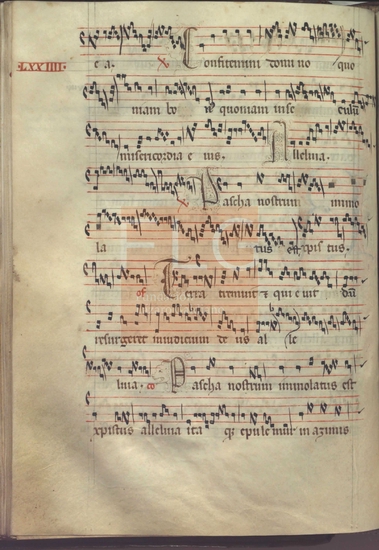 ·LXXIIII·
e a. ℣ Confitemini domino quo
niam bo n⁹ quoniam in se culū
misericordia e ius. Alleluia.
℣ Pascha nostrum immo
la tus est xpistus.
of Terra tremuit ⁊ qui e uit dū
resurgeret iniudicium de us al le
luia. co Pascha nostrum immolatus est
xpistus alleluia ita q; epulemur in azimis